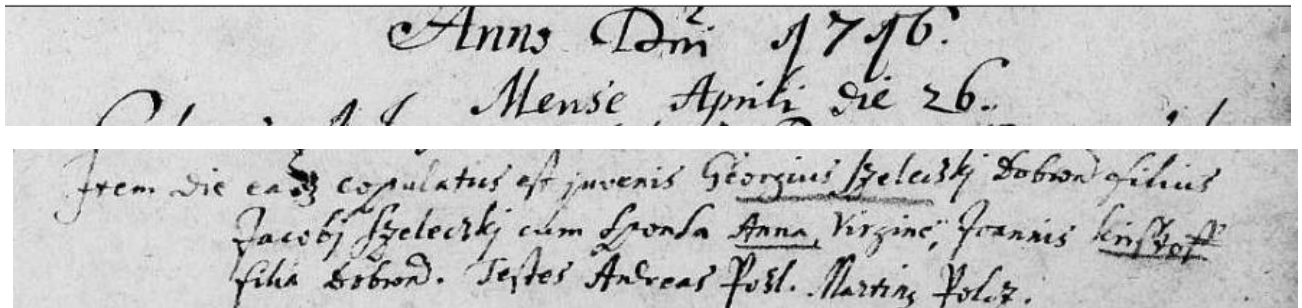 Anno Dni 1716.
Mense Aprili die 26.
Item die eadem copulatus est juvenis Georgius Szeleczkj Dobron. filius
Jacobj Szeleczkj cum sponsa Anna, Virgine, Joannis Kristoff
filia Dobron. Testes Andreas Posl. Martinus Polcz.